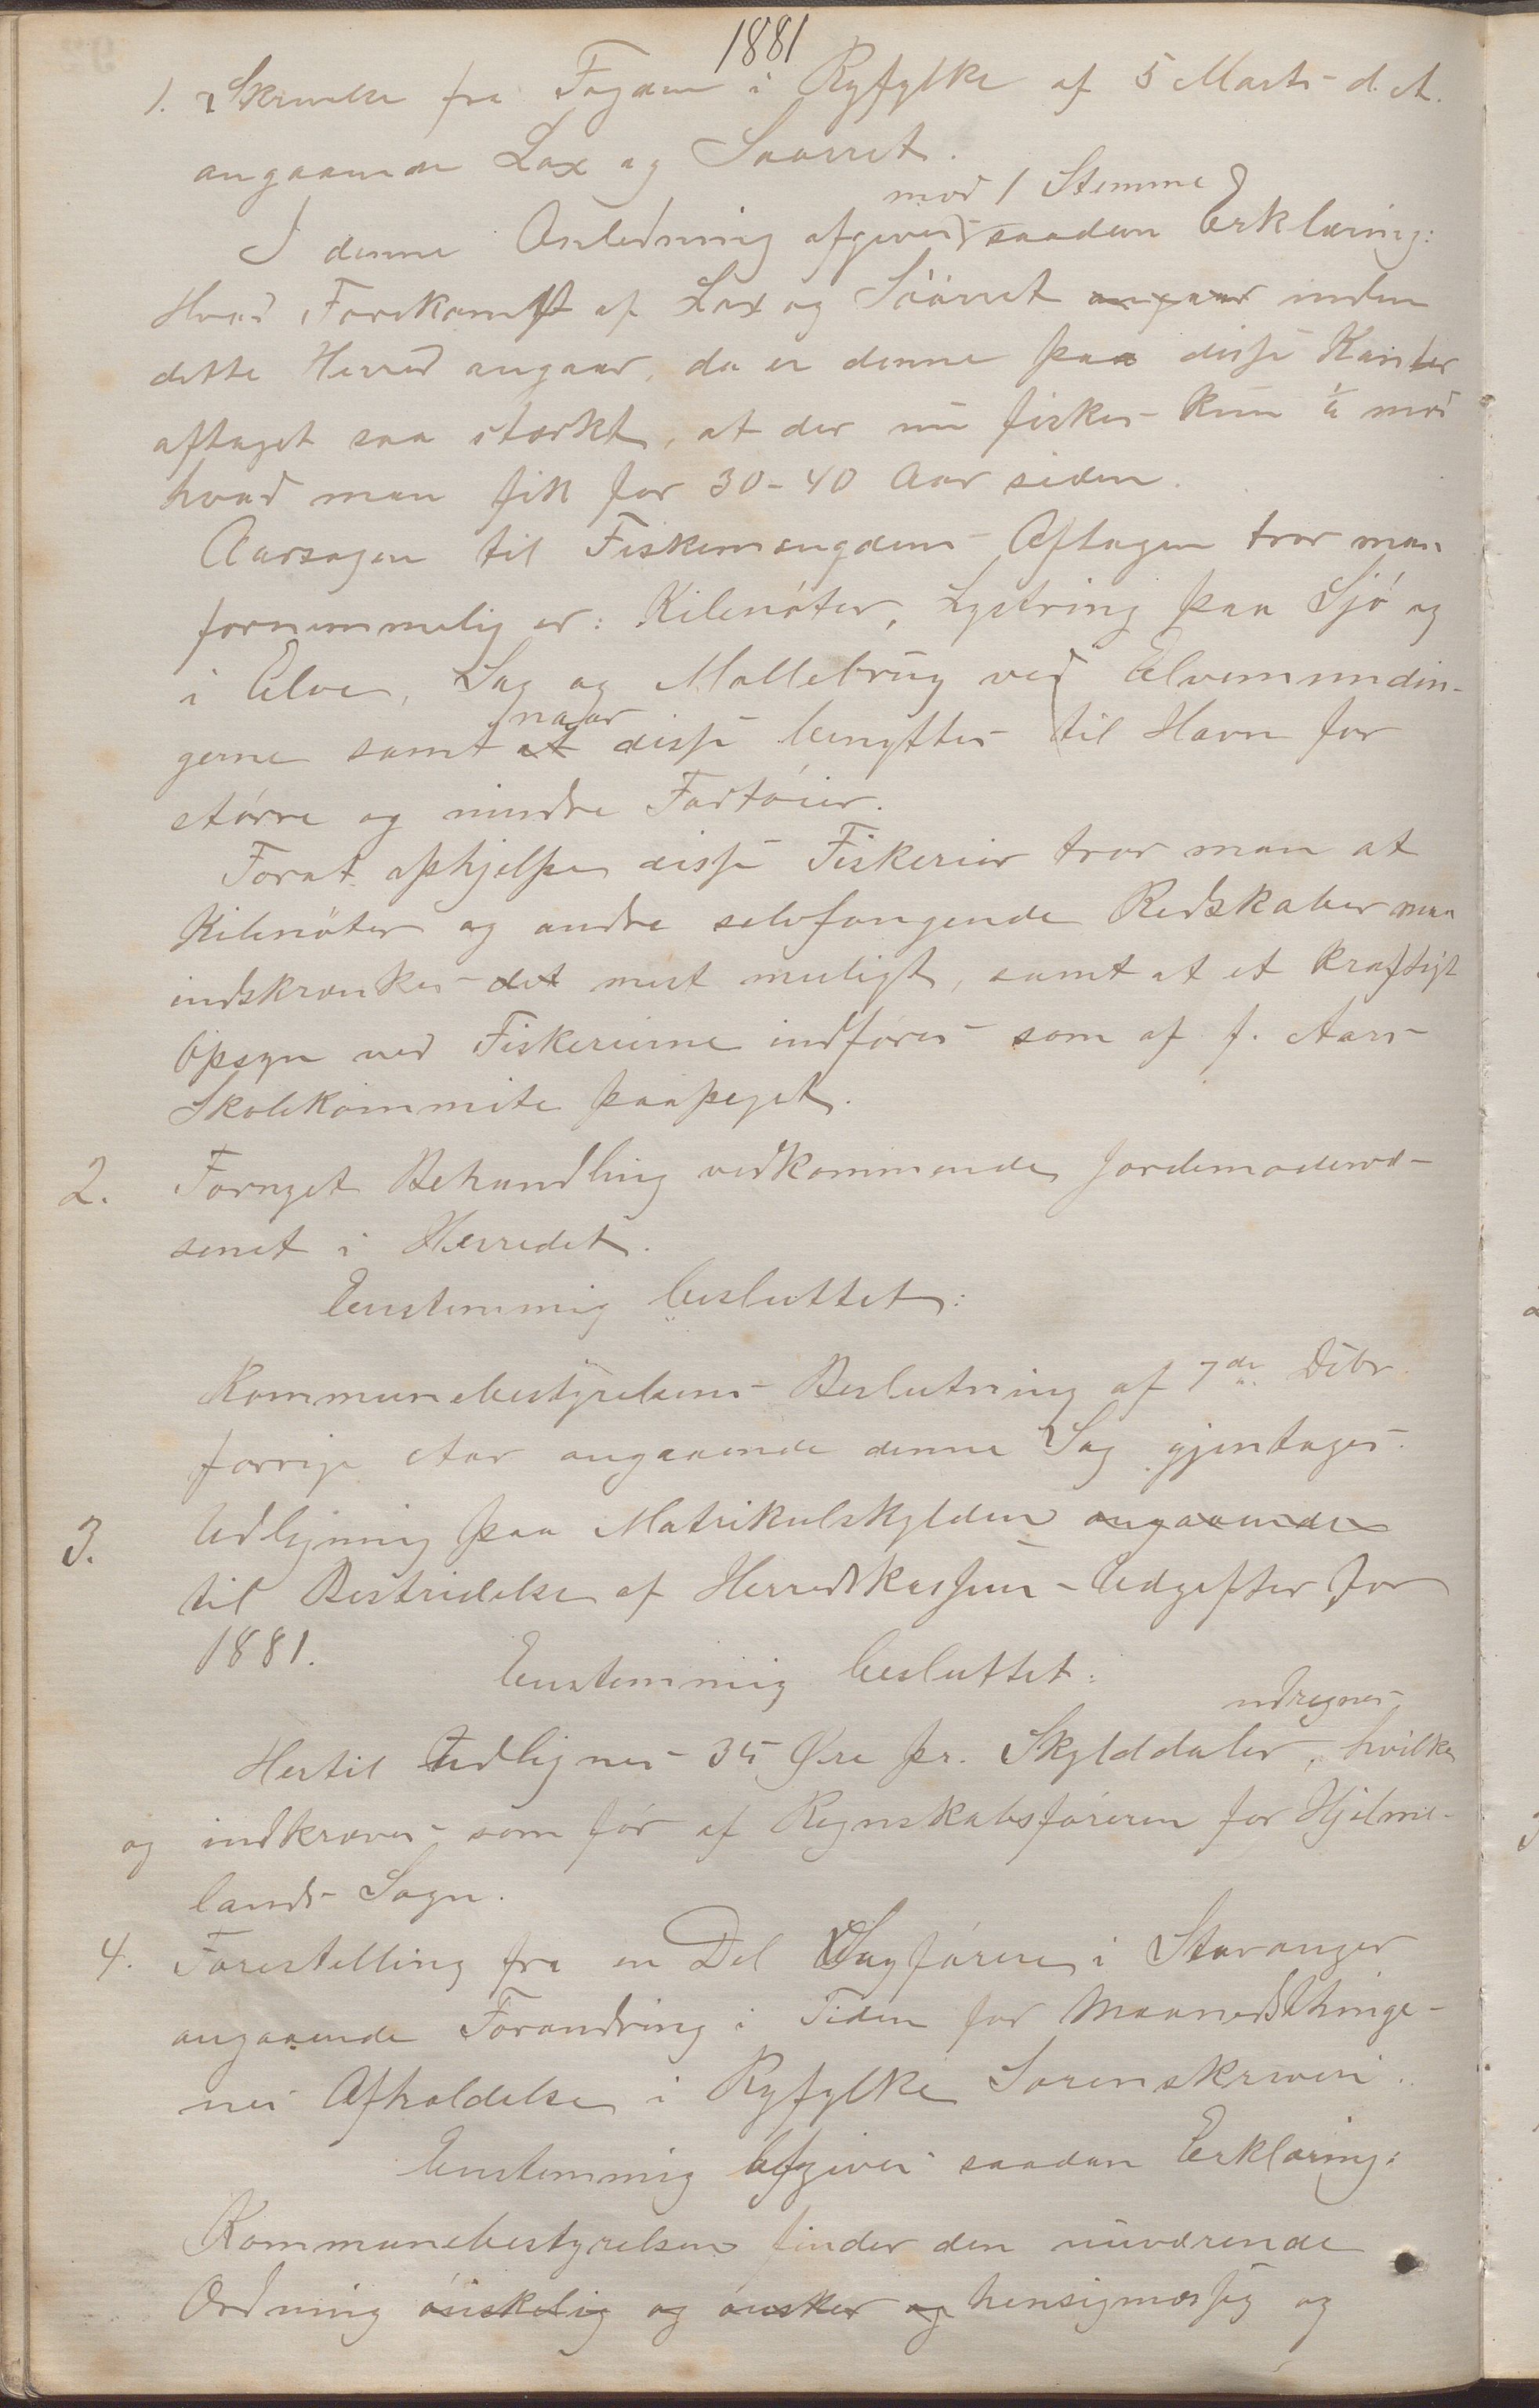 1881
1. Skrivelse fra Fogden i Ryfylke af 5 Marts d. A.
angaaende Lax og Søørret.
mod 1 Stemme
I denne Anledning afgives saaden Erklæring:
Hvad Forekomst af Lax og Søørret angaar inden
dette Herred angaar, da er denne paa disse Kanter
aftaget saa stærkt, at der nu fiskes kun ¼ mod
hvad man fik for 30-40 Aar siden.
Aarsagen til Fiskemængdens Aftagen tror man
fornemmelig er: Kilenøter, Lystring paa Sjø og
i Elve, Sag og Møllebrug ved Elvemundin-
naar
gerne samt at disse benyttes til Havn for
større og mindre Fartøier.
Forat ophjelpe disse Fiskerier tror man at
Kilenøter og andre selvfangende Redskaber maa
indskrænkes det mest muligt, samt at et kraftigt
Opsyn ved Fiskerierne indføres som af f. Aars
Skolekommite paapeget.
2. Fornyet Behandling vedkommende Jordemodervæ-
senet i Herredet.
Enstemmig besluttet:
Kommunebestyrelsens Beslutning af 7de Dcbr
forrige Aar angaaende denne Sag gjentages.
3. Udligning paa Matrikulskylden angaaende
til Bestridelse af Herredskassens Udgifter for
1881.
Enstemmig besluttet:
udregnes
Hertil udlignes 35 Øre pr. Skylddaler, hvilke
og indkræves som før af Regnskabsføreren for Hjelme-
lands Sogn.
4. Forestilling fra en Del Sagførere i Stavanger
angaaende Forandring i Tiden for Maanedsthinge-
nes Afholdelse i Ryfylke Sorenskriveri.
Enstemmig afgives saadan Erklæring:
Kommunebestyrelsen finder den nuværende
Ordning ønskelig og ønsker og hensigmæssig og